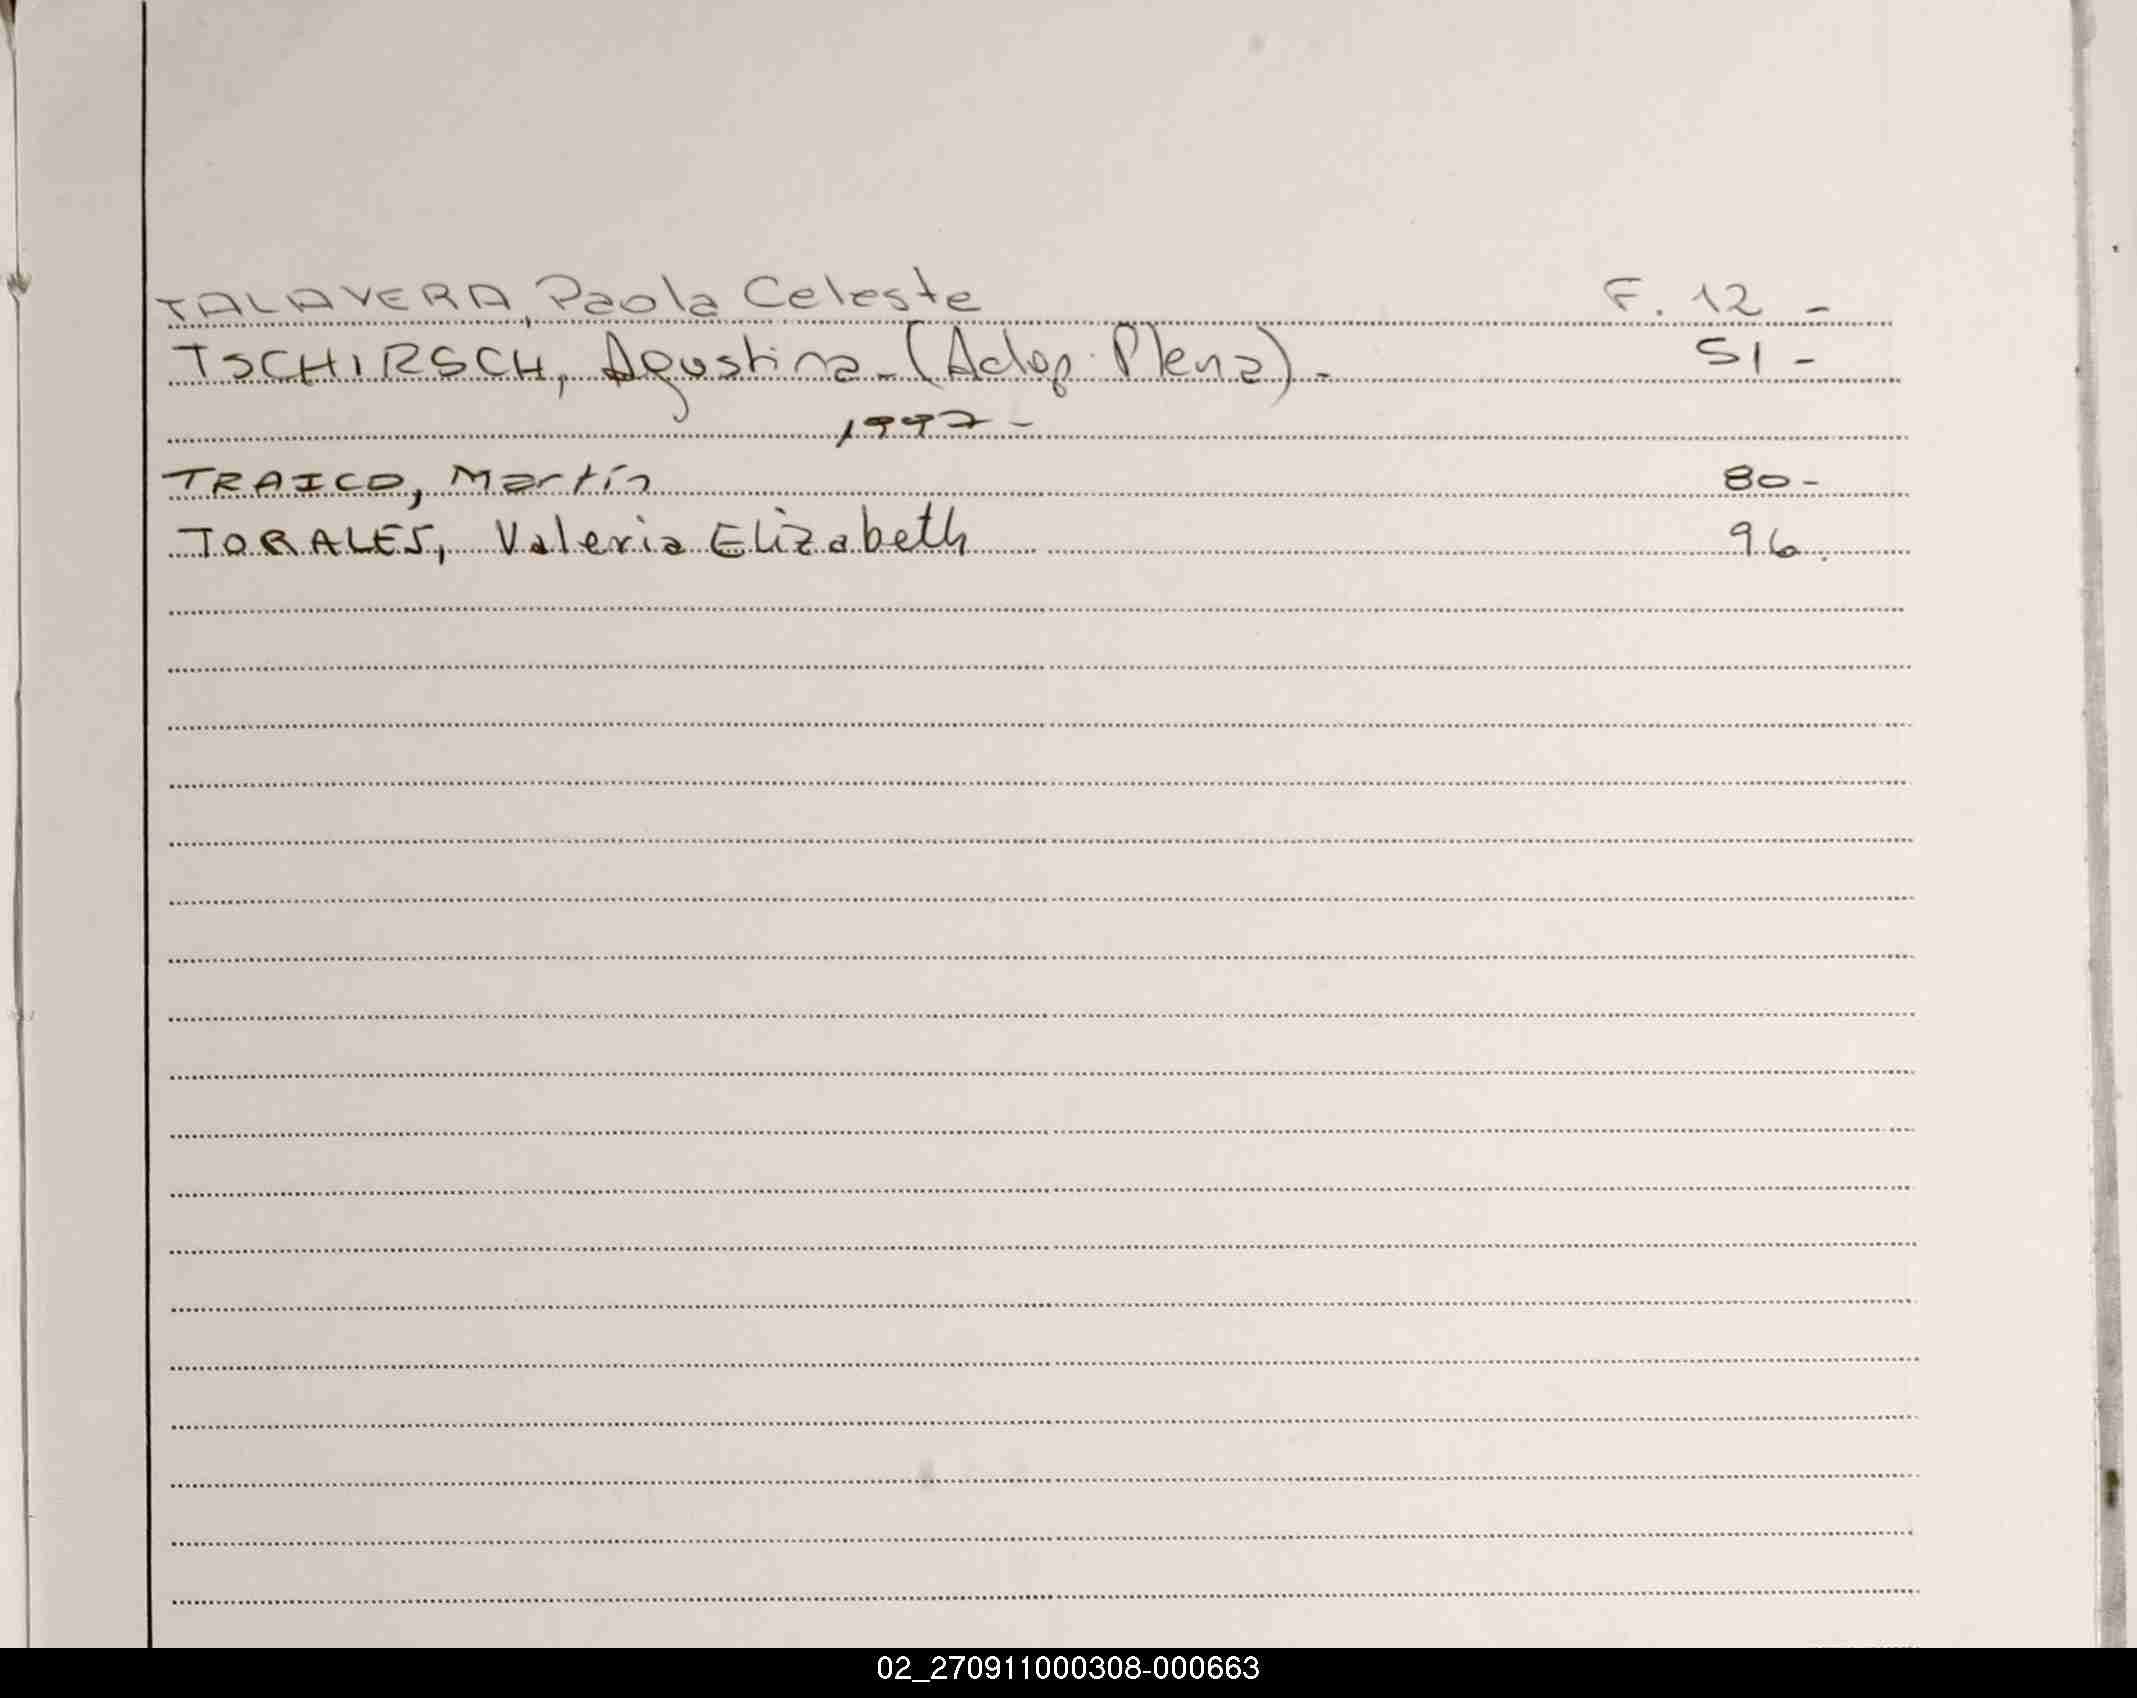 TALAVERA, Paola Celeste F. 12 -
TSCHIRSCH, Agustina - (Adop. Plena). - 51 -
1997 -
TRAICO, Martín 80 -
TORALES, Valeria Elizabeth 96.
02_270911000308-000663